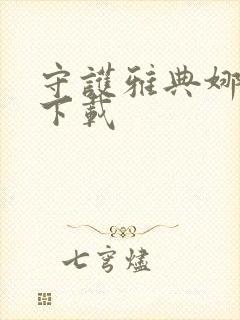 守護雅典娜
下載
七穹燼